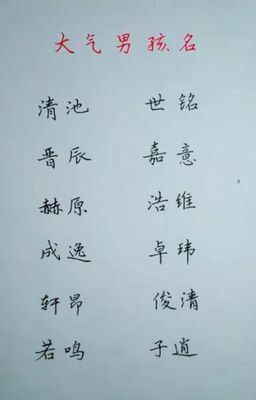 大气男孩名
清池 世铭
晋辰 嘉意
赫原 浩维
成逸 卓玮
轩昂 俊清
若鸣 子逍